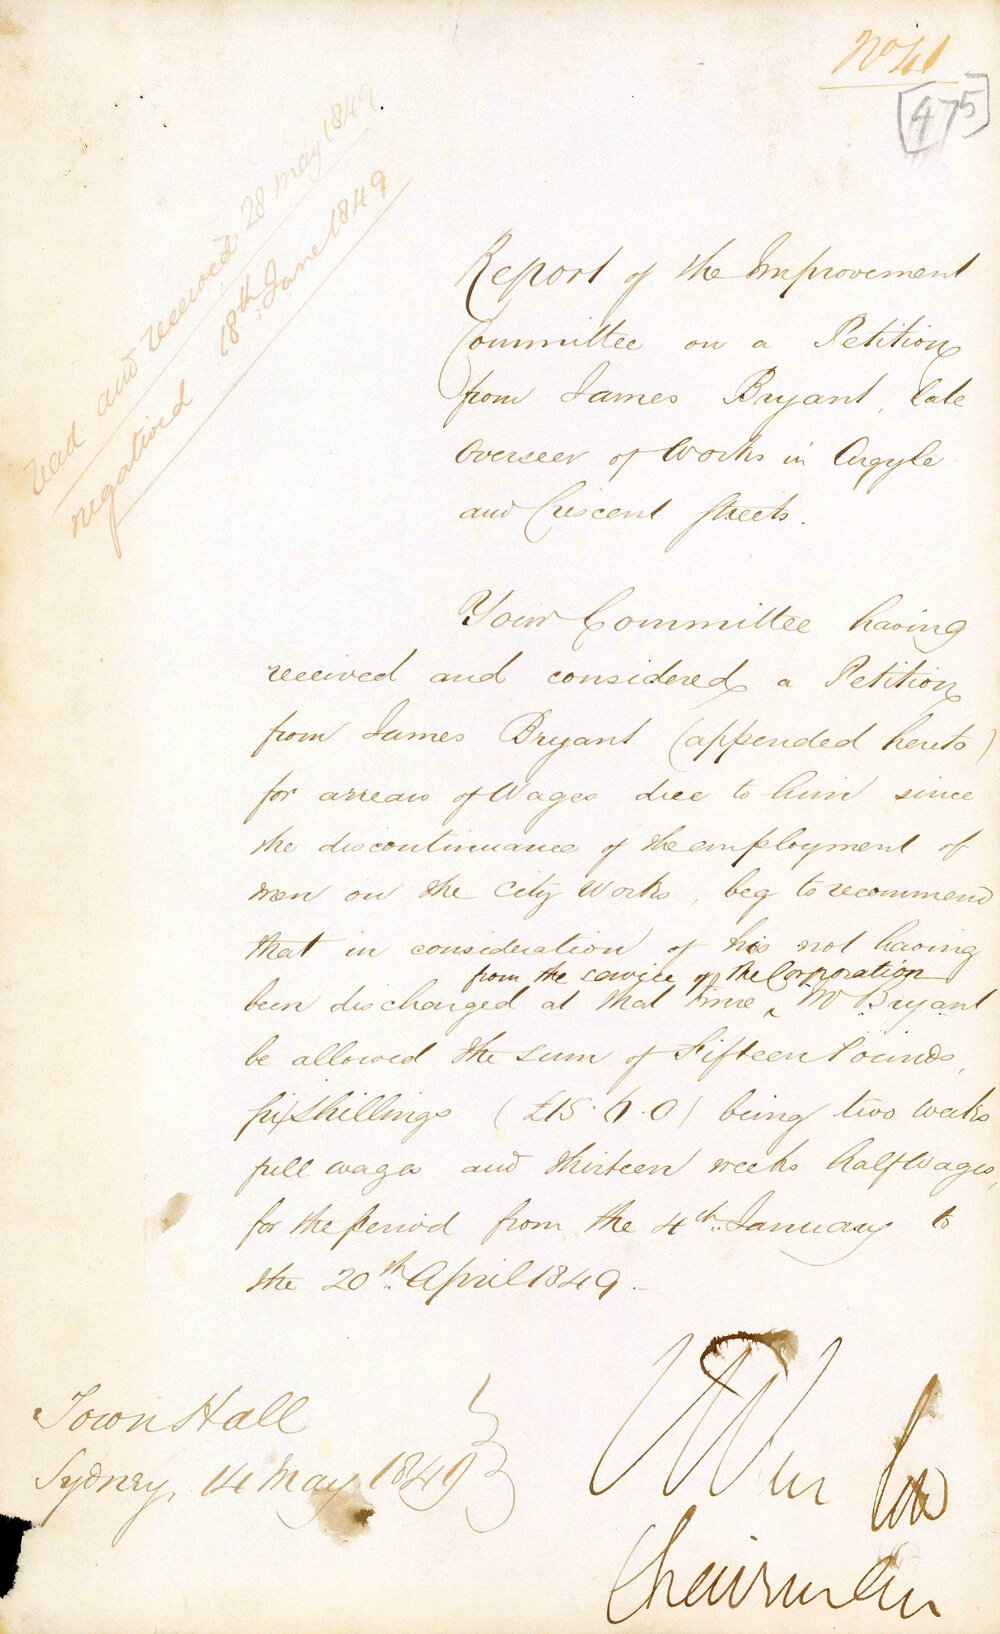 No 41
[475]
read and received 28 May 1849
negatived 18th June 1849
Report of the Improvement
Committee on a Petition
from James Bryant, late
Overseer of Works in Argyle
and Crescent Streets.
Your Committee having
received and considered a Petition
from James Bryant (appended hereto)
for arrears of Wages due to him since
the discontinuance of the employment of
men on the City Works, beg to recommend
that in consideration of his not having
from the service of the Corporation
been discharged at that time ^ Mr Bryant
be allowed the sum of Fifteen Pounds,
six Shillings (£15.6.0) being two weeks
full wages and thirteen weeks half Wages,
for the period from the 4th January to
the 20th April 1849.
Town Hall
Sydney, 14 May 1849
Chairman